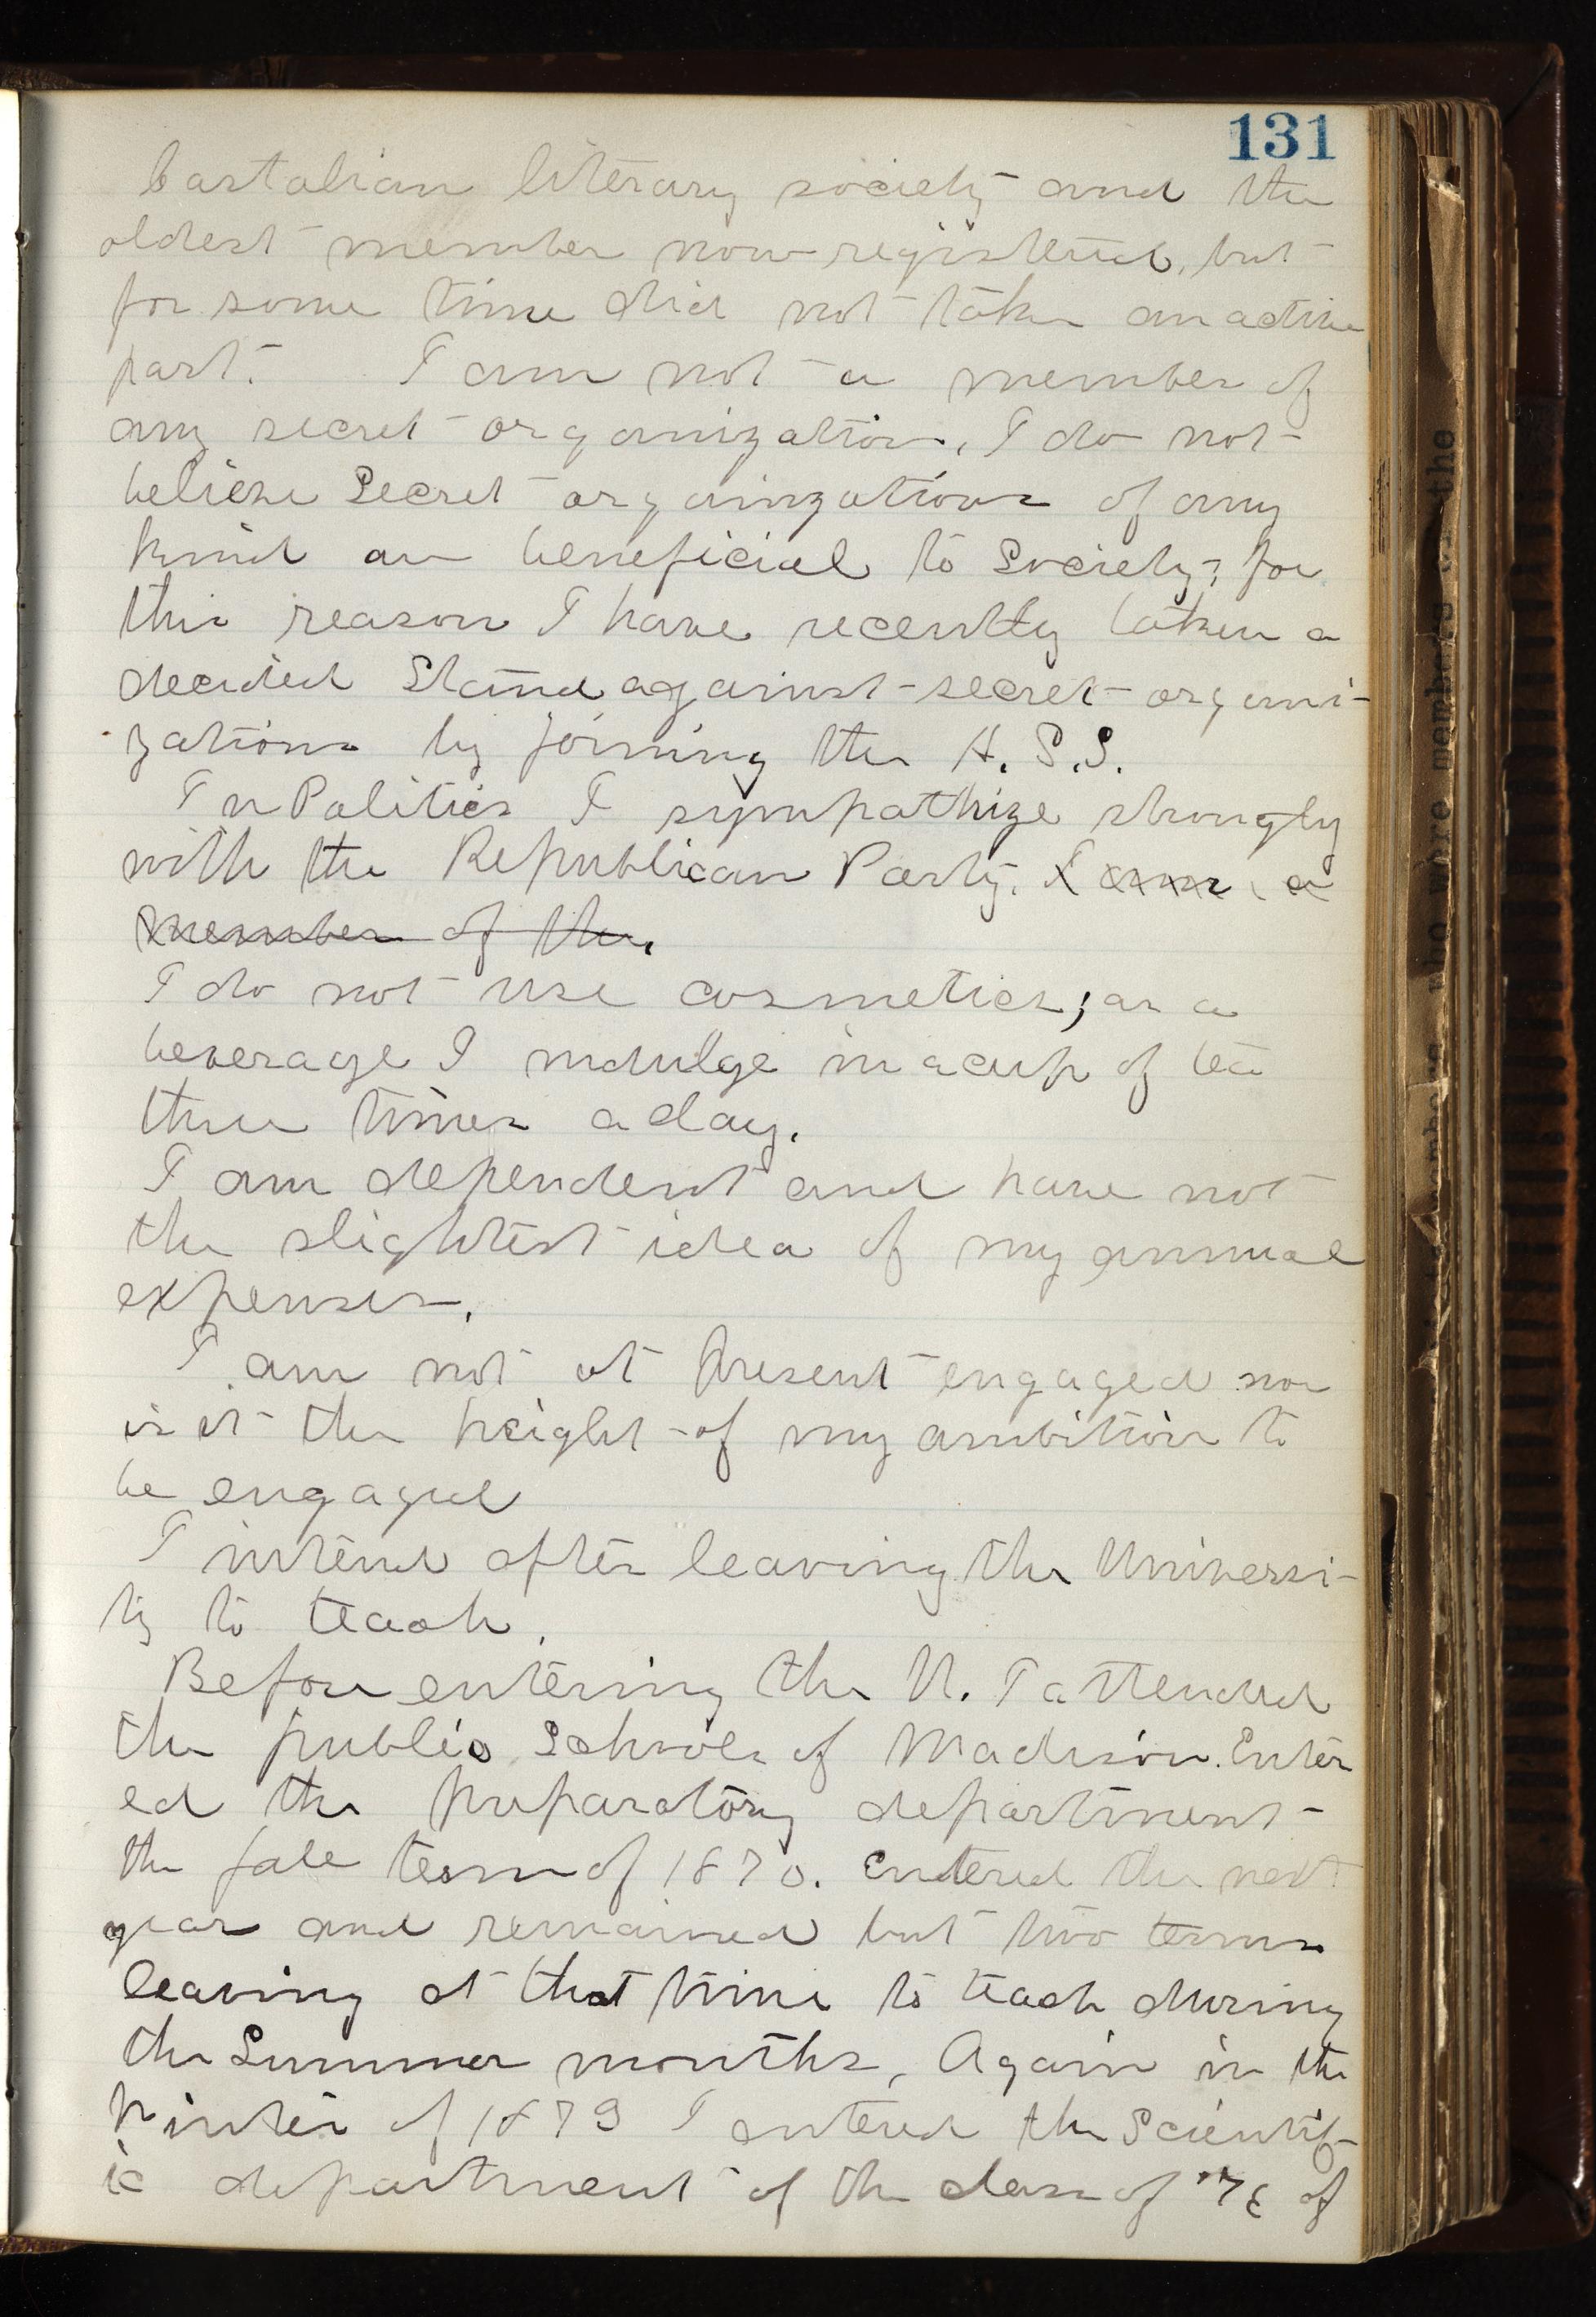 131
Castalian literary society and the
oldest member now registered, but
for some time did not take an active
part. I am not a member of
any secret organization, I do not
believe Secret organizations of any
kind are beneficial to Society; for
this reason I have recently taken a
decided Stand against secret organi-
zations by joining the H. S. S.
In Politics I sympathize strongly
with the Republican Party. I am a
member of the.
I do not use cosmetics; as a
beverage I indulge in a cup of tea
three times a day.
I am dependent and have not
the slightest idea of my annual
expenses.
I am not at present engaged nor
is it the height of my ambition to
be engaged
I intend after leaving the Universi-
ty to teach.
Before entering the U. I attended
the public Schools of Madison. Enter
ed the preparatory department
the fall term of 1870. Entered the next
year and remained but two terms
leaving at that time to teach during
the Summer months, Again in the
Winter of 1873 I entered the Scientif-
ic department of the class of of
who were members the